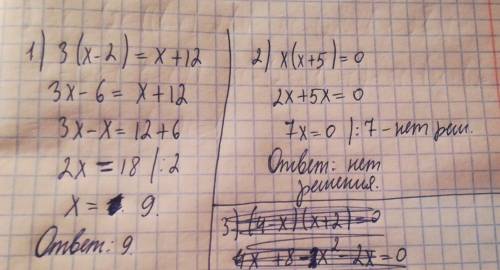 1) 3(x-2)=x+12
3x-6=x+12
3x-x=12+6
2x=18 |:2
x= 9.
Ответ: 9.
2) x(x+5)=0
2x+5x=0
7x=0 |:7 - нет реш.
Ответ: нет
решения.
3) (4-x)(x+2)=0
4x+8-x²-2x=0